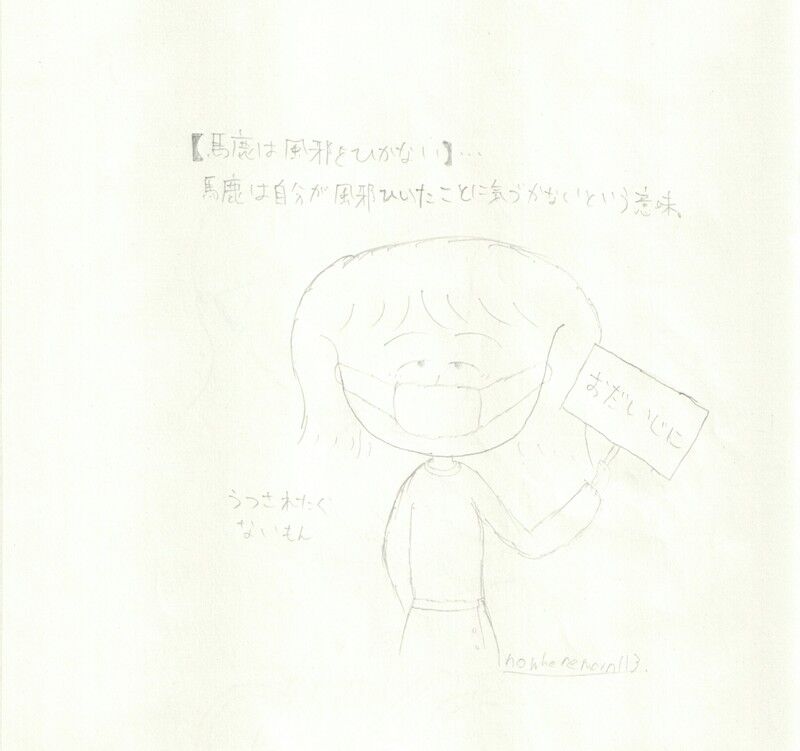 【馬鹿は風邪をひかない】…
馬鹿は自分が風邪ひいたことに気づかないという意味。
おだいじに
うつされたく
ないもん
nowhereman113.